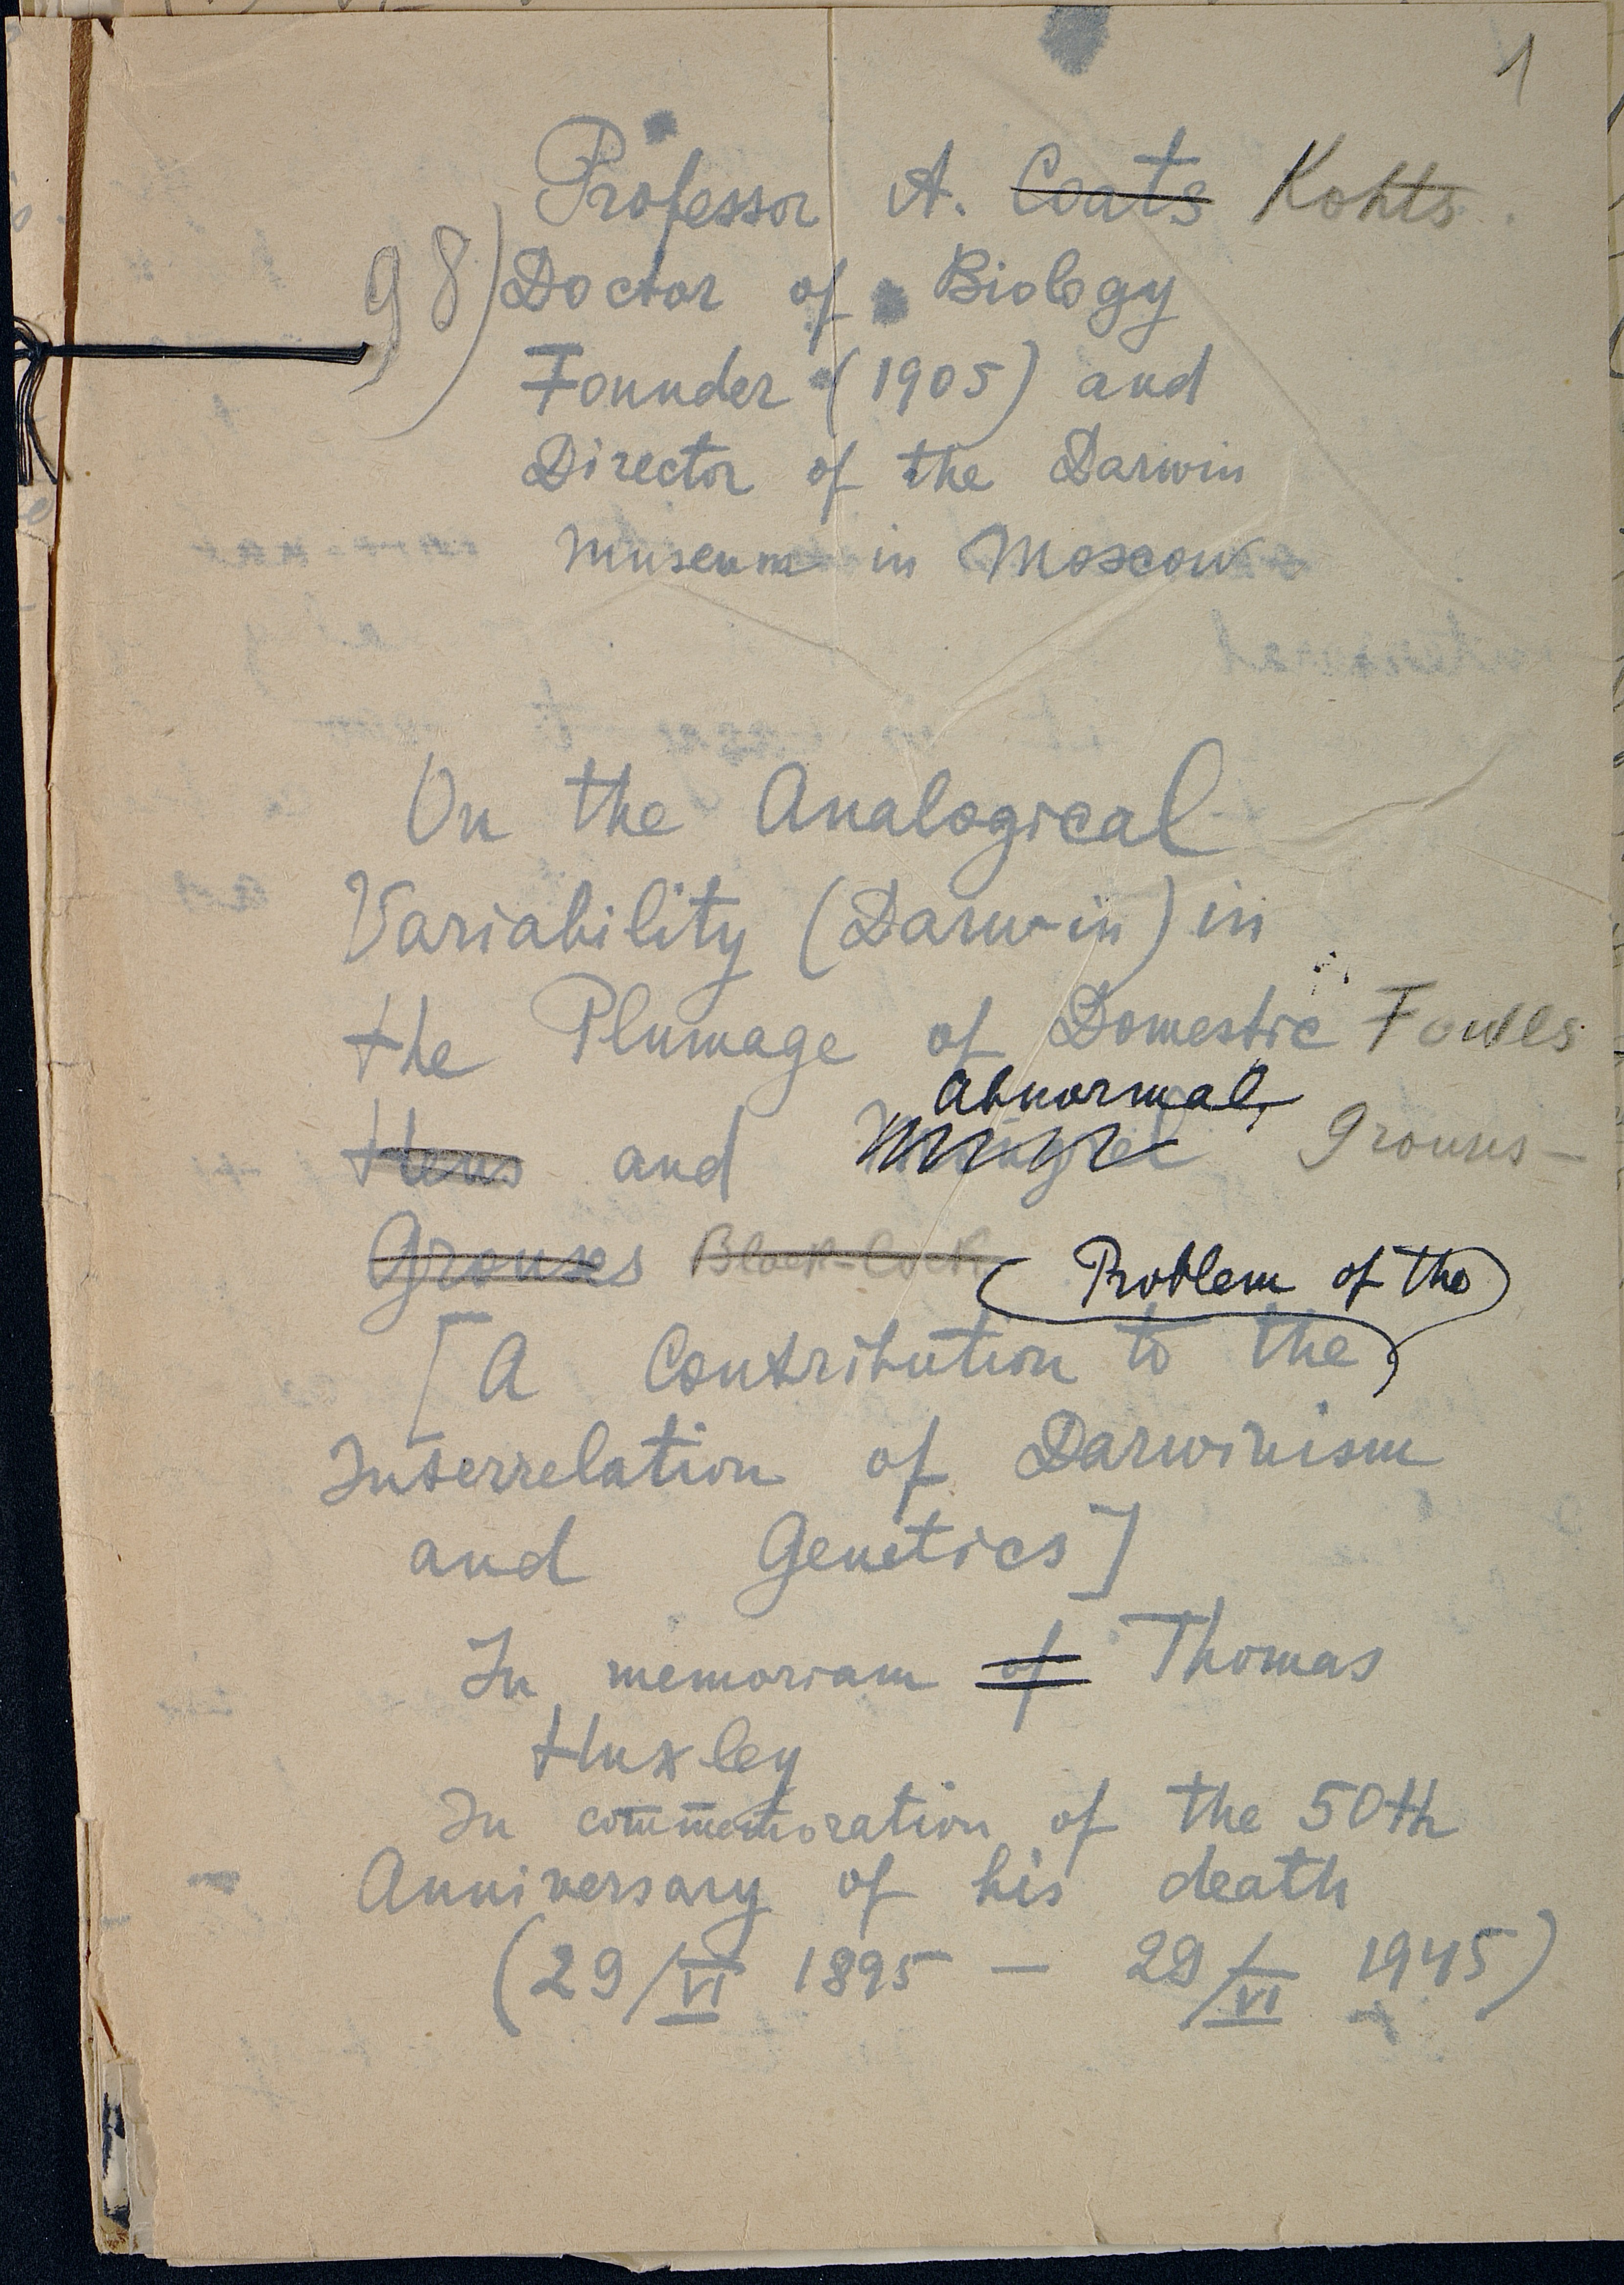 1
Professor A. Coats Kohts
98) Doctor of Biology
Founder (1905) and
Director of the Darwin
Museum in Moscow
On the Analogical
Variability (Darwin) in
the Plumage of Domestic Fowles
abnormal,
Hens and Grouses -
Grouses Black-Cock
Problem of the
[A Contribution to the
Interrelation of Darwinism
and Genetics]
In memoriam of Thomas
Huxley
In commemoration of the 50th
Anniversary of his death
(29/VI 1895 - 29/VI 1945)